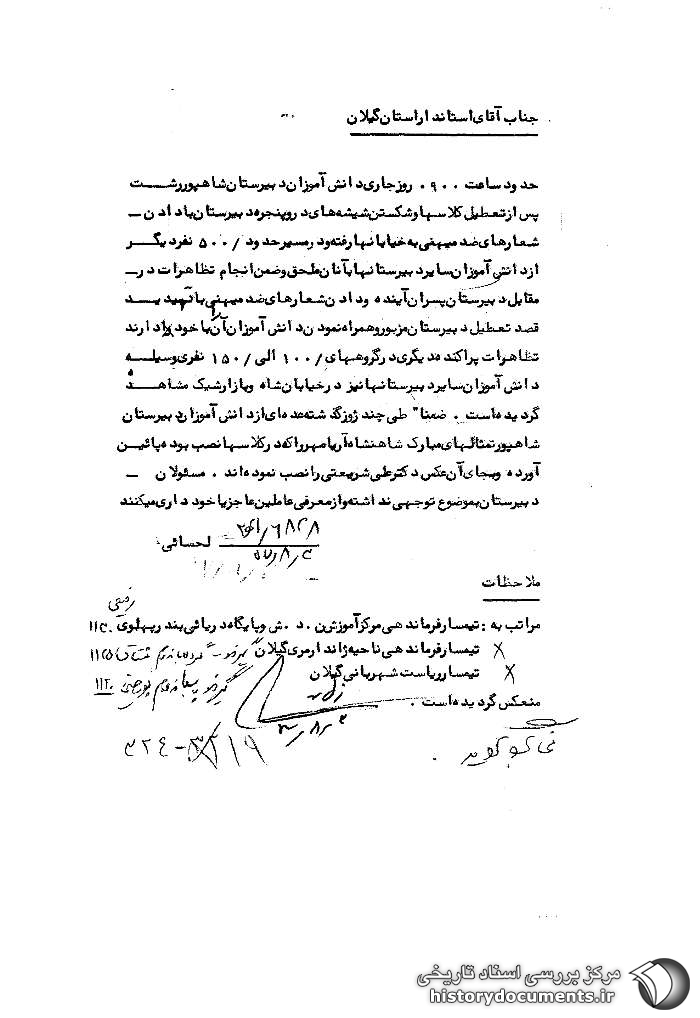 جناب آقای استاندار استان گیلان
حدود ساعت ۰۹۰۰ روز جاری دانش آموزان دبیرستان شاهپور رشت
پس از تعطیل کلاسها و شکستن شیشه های در و پنجره دبیرستان با دادن ــ
شعارهای ضد میهنی به خیابانها رفته و در مسیر حدود /۵۰۰ نفر دیگر
از دانش آموزان سایر دبیرستانها با آنان ملحق و ضمن انجام تظاهرات در ــ
مقابل دبیرستان پسران آینده و دادن شعارهای ضد میهنی با تهدید
قصد تعطیل دبیرستان مزبور و همراه نمودن دانش آموزان آن با خود را دارند
تظاهرات پراکنده دیگری در گروههای /۱۰۰ الی /۱۵۰ نفری وسیله
دانش آموزان سایر دبیرستانها نیز در خیابان شاه و بازار شیک مشاهده
گردیده است . ضمنا" طی چند روز گذشته عده ای از دانش آموزان دبیرستان
شاهپور تمثالهای مبارک شاهنشاه آریامهر را که در کلاسها نصب بوده پائین
آورده و بجای آن عکس دکتر علی شریعتی را نصب نموده اند . مسئولان ــ
دبیرستان بموضوع توجهی نداشته و از معرفی عاملین ماجرا خودداری میکنند
لحسائی
۵۷/۸/۳
ملاحظات
مراتب به : تیمسار فرماندهی مرکز آموزش ن . د . ش و پایگاه دریائی بندر پهلوی
تیمسار فرماندهی ناحیه ژاندارمری گیلان
تیمسار ریاست شهربانی گیلان
منعکس گردیده است .
مرکز بررسی اسناد تاریخی
historydocuments.ir